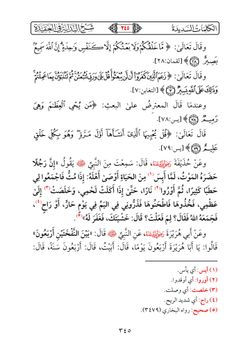 الكلمات السديدة ٣٤٥ شرح البداية في العقيدة
وقال تعالى: ﴿مَا خَلْقُكُمْ وَلَا بَعْثُكُمْ إِلَّا كَنَفْسٍ وَاحِدَةٍ إِنَّ اللَّهَ سَمِيعٌ
بَصِيرٌ﴾ [لقمان:٢٨].
وقال تعالى: ﴿زَعَمَ الَّذِينَ كَفَرُوا أَن لَّن يُبْعَثُوا قُلْ بَلَى وَرَبِّي لَتُبْعَثُنَّ ثُمَّ لَتُنَبَّؤُنَّ بِمَا عَمِلْتُمْ
وَذَلِكَ عَلَى اللَّهِ يَسِيرٌ﴾ [التغابن:٧].
وعندما قال المعترض على البعث: ﴿مَن يُحْيِ الْعِظَامَ وَهِيَ
رَمِيمٌ﴾ [يس:٧٨].
قال تعالى: ﴿قُلْ يُحْيِيهَا الَّذِي أَنشَأَهَا أَوَّلَ مَرَّةٍ وَهُوَ بِكُلِّ خَلْقٍ
عَلِيمٌ﴾ [يس:٧٩].
وعن حُذَيفة قال: سمعت من النبي ﷺ يقول: «إنَّ رَجُلًا
حَضَرَهُ المَوْتُ، لَمَّا أَيِسَ (١) مِنَ الحَيَاةِ أَوْصَى أَهْلَهُ: إِذَا مُتُّ فَاجْمَعُوا لِي
حَطَبًا كَثِيرًا، ثُمَّ أَوْرُوا (٢) نَارًا، حَتَّى إِذَا أَكَلَتْ لَحْمِي، وَخَلَصَتْ (٣) إِلَى
عَظْمِي، فَخُذُوهَا فَاطْحَنُوهَا فَذَرُّونِي فِي اليَمِّ فِي يَوْمٍ حَارٍّ، أَوْ رَاحٍ (٤)،
فَجَمَعَهُ اللهُ فَقَالَ؟ لِمَ فَعَلْتَ؟ قَالَ: خَشْيَتَكَ، فَغَفَرَ لَهُ» (٥).
وعن أبي هُرَيرة، عن النبي ﷺ قال: «بَيْنَ النَّفْخَتَيْنِ أَرْبَعُونَ»
قالوا: يا أبا هُرَيرة أربعون يومًا، قال: أبيتُ، قال: أربعون سنة، قال:
(١) أيس: أي يأس.
(٢) أوروا: أي أوقدوا.
(٣) خلصت: أي وصلت.
(٤) راح: أي شديد الريح.
(٥) صحيح: رواه البخاري (٣٤٧٩).
٣٤٥